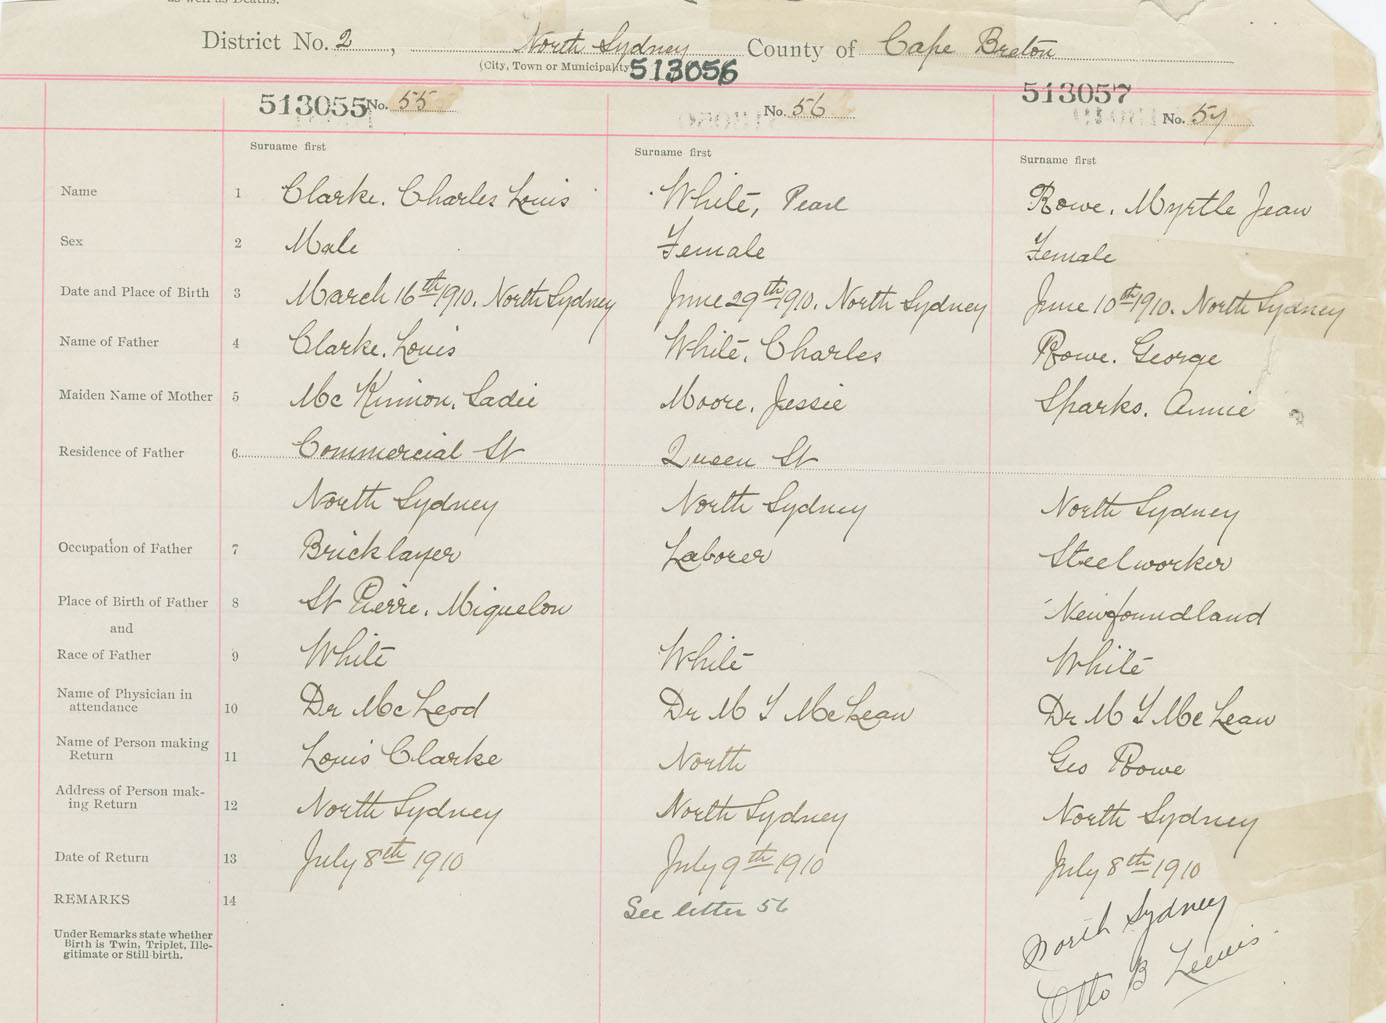 as well as Deaths.
District No. 2, North Sydney County of Cape Breton
(City, Town or Municipality)
513056
513055 No. 55 No. 56 513057 No. 57
Surname first Surname first Surname first
Name 1 Clarke. Charles Louis White, Pearl Rowe. Myrtle Jean
Sex 2 Male Female Female
Date and Place of Birth 3 March 16th 1910. North Sydney June 29th 1910. North Sydney June 10th 1910. North Sydney
Name of Father 4 Clarke. Louis White. Charles Rowe. George
Maiden Name of Mother 5 Mc Kinnon. Sadie Moore. Jessie Sparks. Annie
Residence of Father 6 Commercial St Queen St
North Sydney North Sydney North Sydney
Occupation of Father 7 Bricklayer Laborer Steelworker
Place of Birth of Father 8 St Pierre. Miquelon Newfoundland
and
Race of Father 9 White White White
Name of Physician in
attendance 10 Dr Mc Leod Dr M T McLean Dr M T McLean
Name of Person making
Return 11 Louis Clarke North Geo Rowe
Address of Person mak-
ing Return 12 North Sydney North Sydney North Sydney
Date of Return 13 July 8th 1910 July 9th 1910 July 8th 1910
REMARKS 14 See letter 56 North Sydney
Under Remarks state whether
Birth is Twin, Triplet, Ille-
gitimate or Still-birth.
Otto B